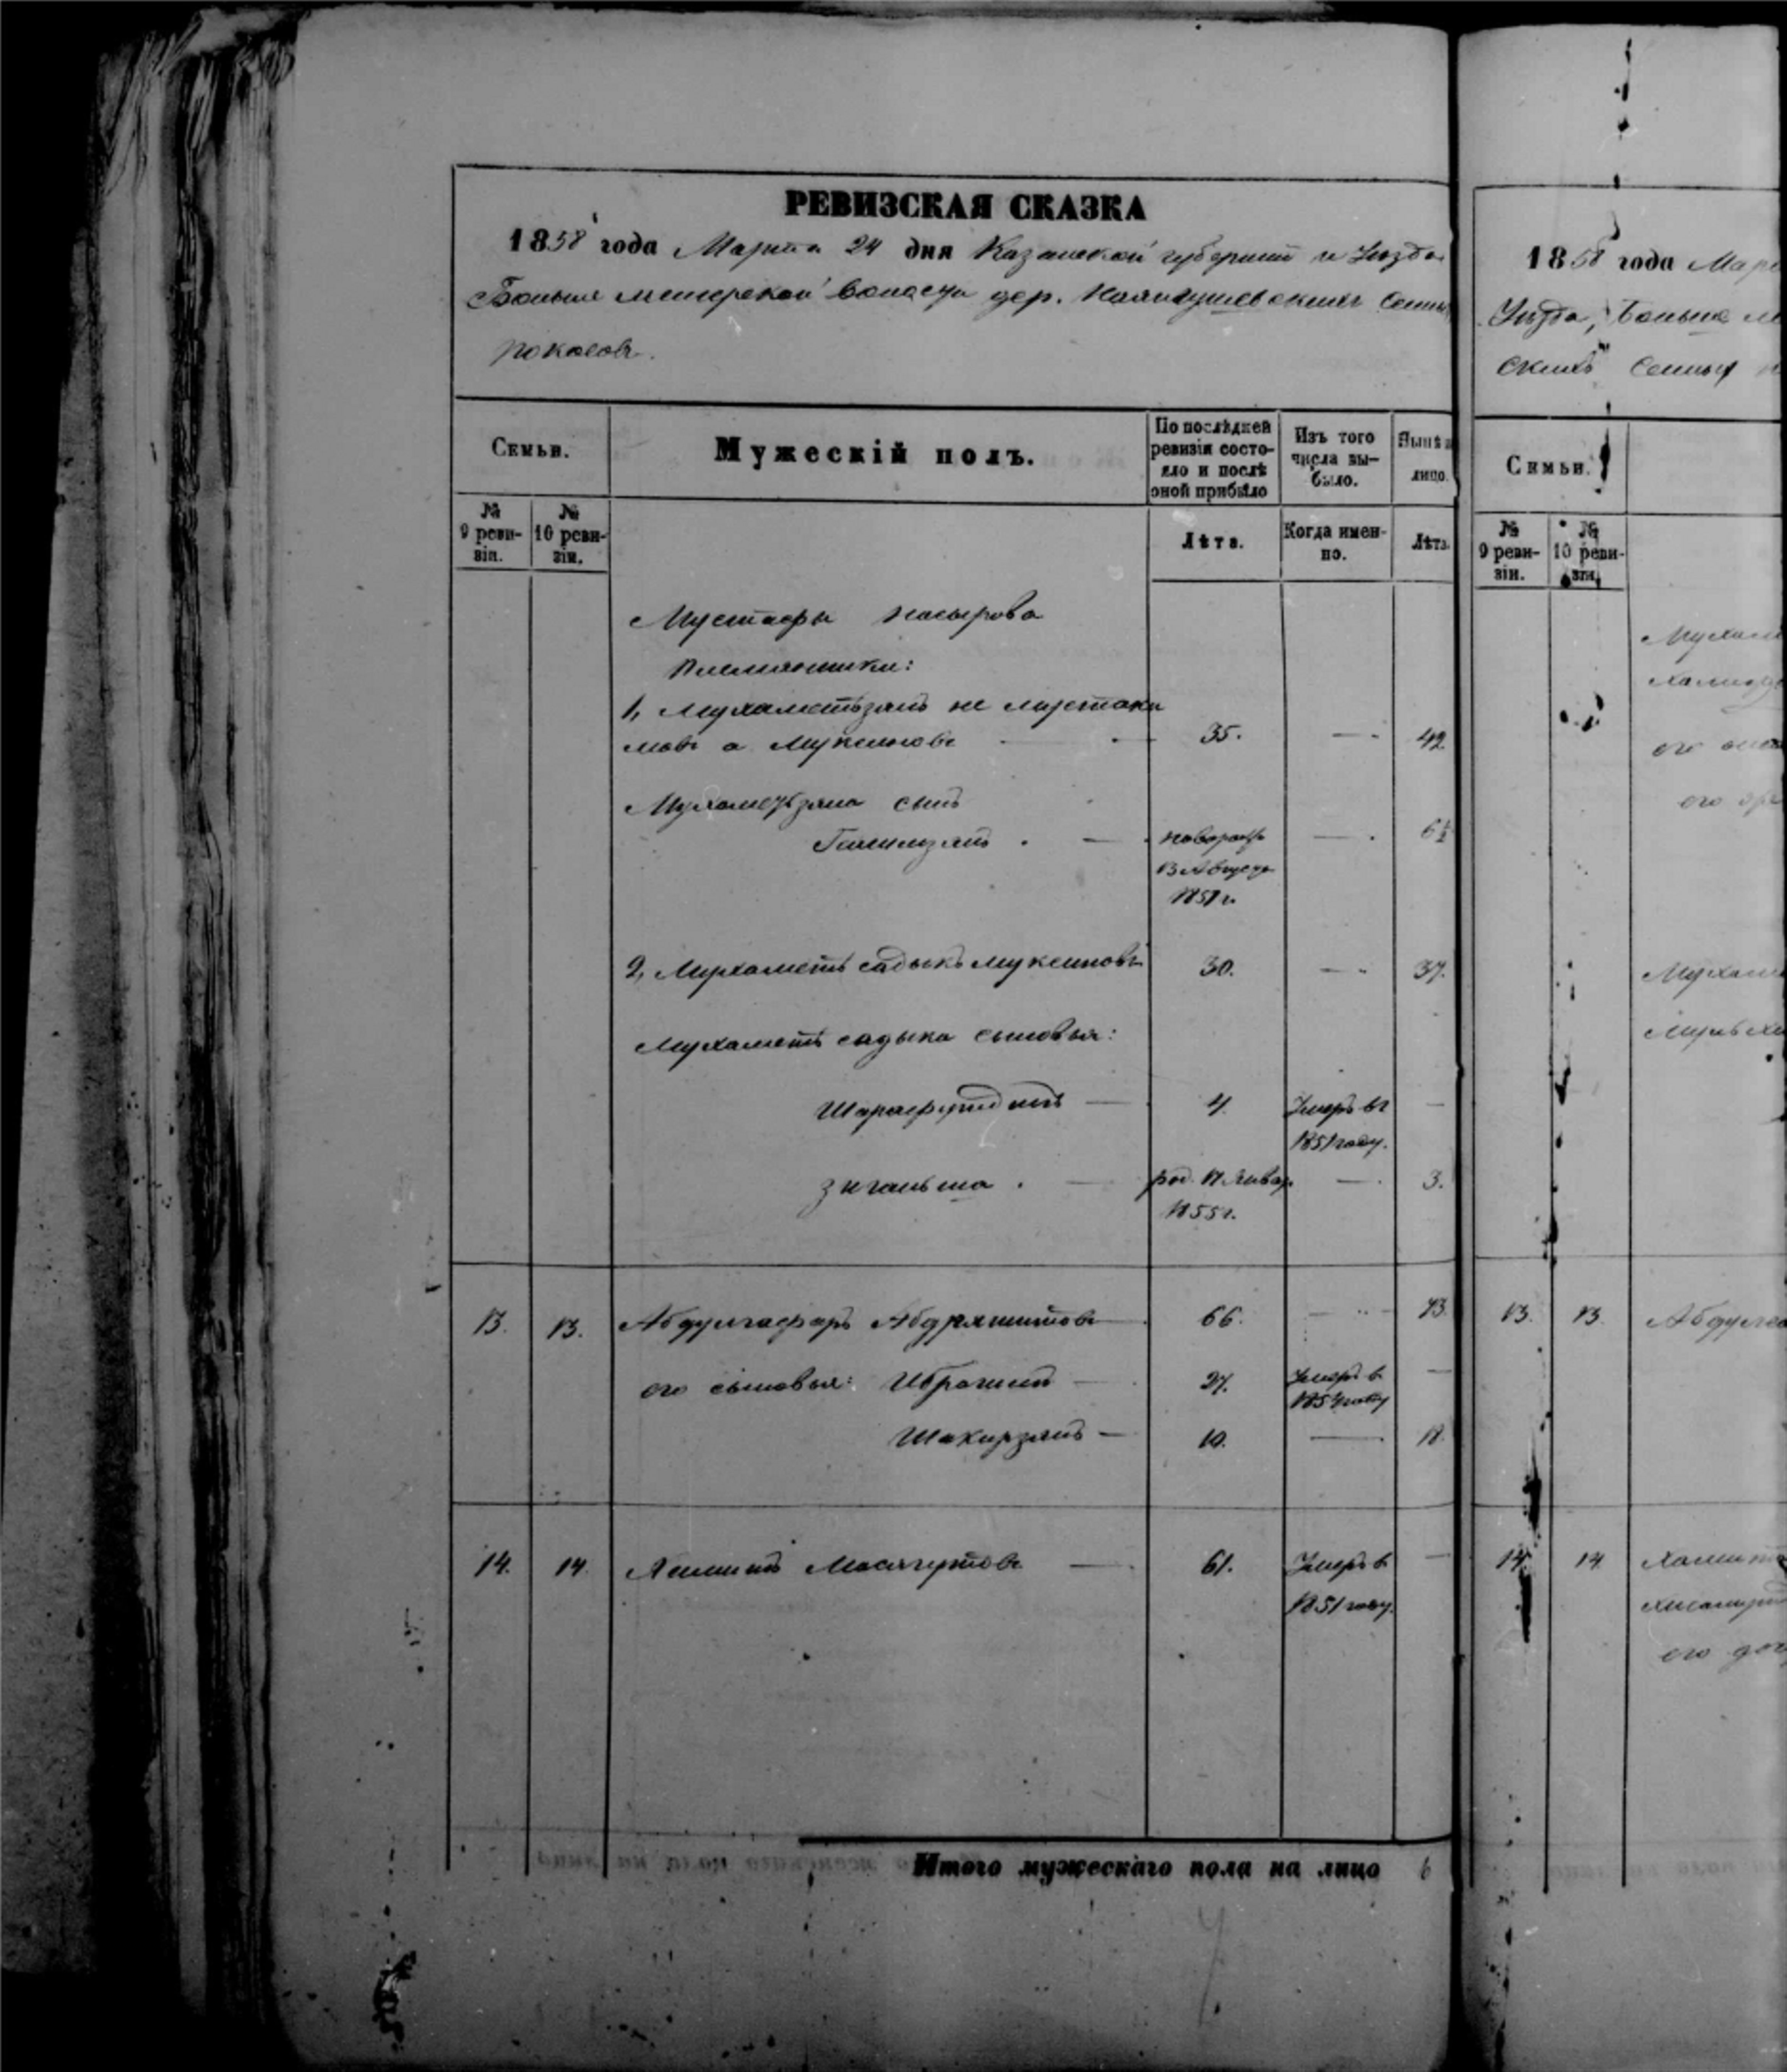 РЕВИЗСКАЯ СКАЗКА
1858 года Марта 24 дня Казанской губернии и Уѣзда
Больше Менгерской волости дер. Сенны
покосовъ.
Семьи. Мужескій полъ. По послѣдней ревизіи состояло и послѣ оной прибыло Изъ того числа выбыло. Нынѣ на лицо.
№ 9 ревизіи. № 10 ревизіи. Лѣта. Когда именно. Лѣта.
Мустафы Насырова
племянники:
1, Мухаметзянъ не Мустаки
мовъ а Муксиновъ 35. — 42
Мухаметзяна сынъ
Галимзянъ новорожд — 6½
въ Августѣ
1851 г.
2, Мухаметъ садыкъ Муксиновъ 30. — 37.
Мухаметъ садыка сыновья:
Шарафутдинъ 4. Умеръ въ —
1851 году.
Зиганьша род. 17 Январ. — 3.
1855 г.
13. 13. Абдулгафаръ Абдряшитовъ 66. — 73.
его сыновья: Ибрагимъ 27. Умеръ в —
1854 году
Шакирзянъ 10. — 18.
14. 14. Масягутовъ 61. Умеръ в —
1851 году.
Итого мужескаго пола на лицо 6
1858 года Мар
Уѣзда, Больше М
скихъ Сенных
Семьи.
№ 9 ревизіи. № 10 ревизіи.
Мухаме
его
его
Мухаме
13. 13. Абдулга
14 14
его доч